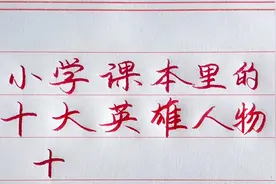 小学课本里的
十大英雄人物
十